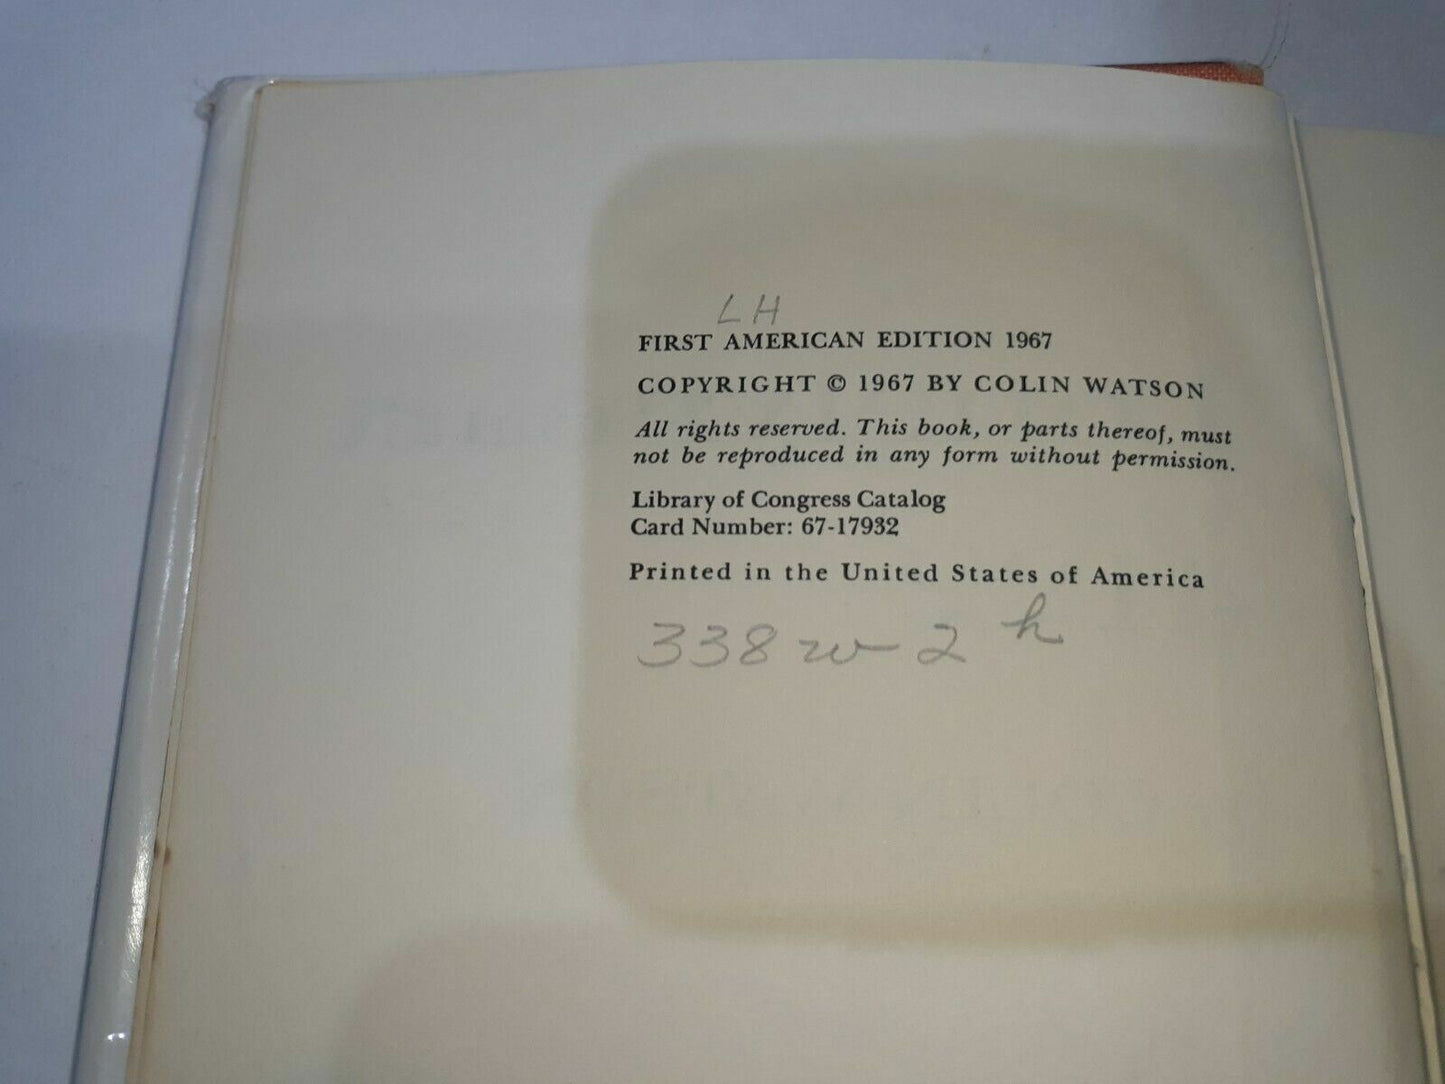 LH
FIRST AMERICAN EDITION 1967
COPYRIGHT © 1967 BY COLIN WATSON
All rights reserved. This book, or parts thereof, must
not be reproduced in any form without permission.
Library of Congress Catalog
Card Number: 67-17932
Printed in the United States of America
338w-2 h